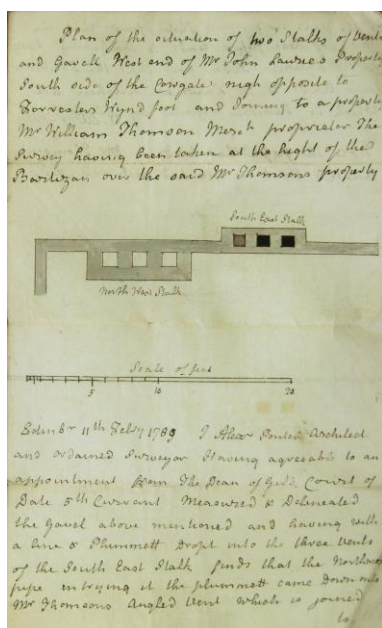 Plan of the situation of two Stalks of Vents
and Gavell West end of Mr John Lawries Property
South side of the Cowgate nigh opposite to
Forresters Wynd foot and Joining to a property
Mr William Thomson Merch proprietor The
Survey having been taken at the hight of the
Bartizan over the said Mr Thomsons property
South East Stalk
North West Stalk
Scale of feet
5 10 20
Edinbr 11th Febry 1789 I Alexr Architect
and ordained Surveyor Having agreeable to an
appointment from The Dean of Guild Court of
Date 5th Currant Measured & Delineated
the Gavel above mentioned and having with
a line & Plummett Dropt into the three vents
of the South East Stalk finds that the
pipe in trying it the plummett came down into
Mr Thomsons Angled Vent which is joined
to